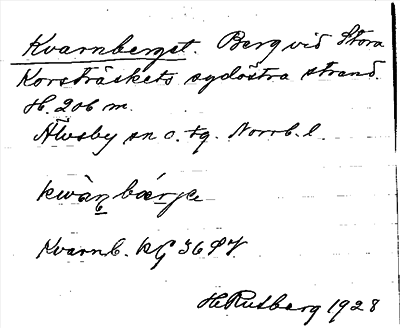 Kvarnberget. Berg vid Stora
Korsträskets sydöstra strand.
H. 206 m.
Älvsby sn o. tg. Norrb. l.
kwàn bǽrje
Kvarnb. KG 36
H Rutberg 1928